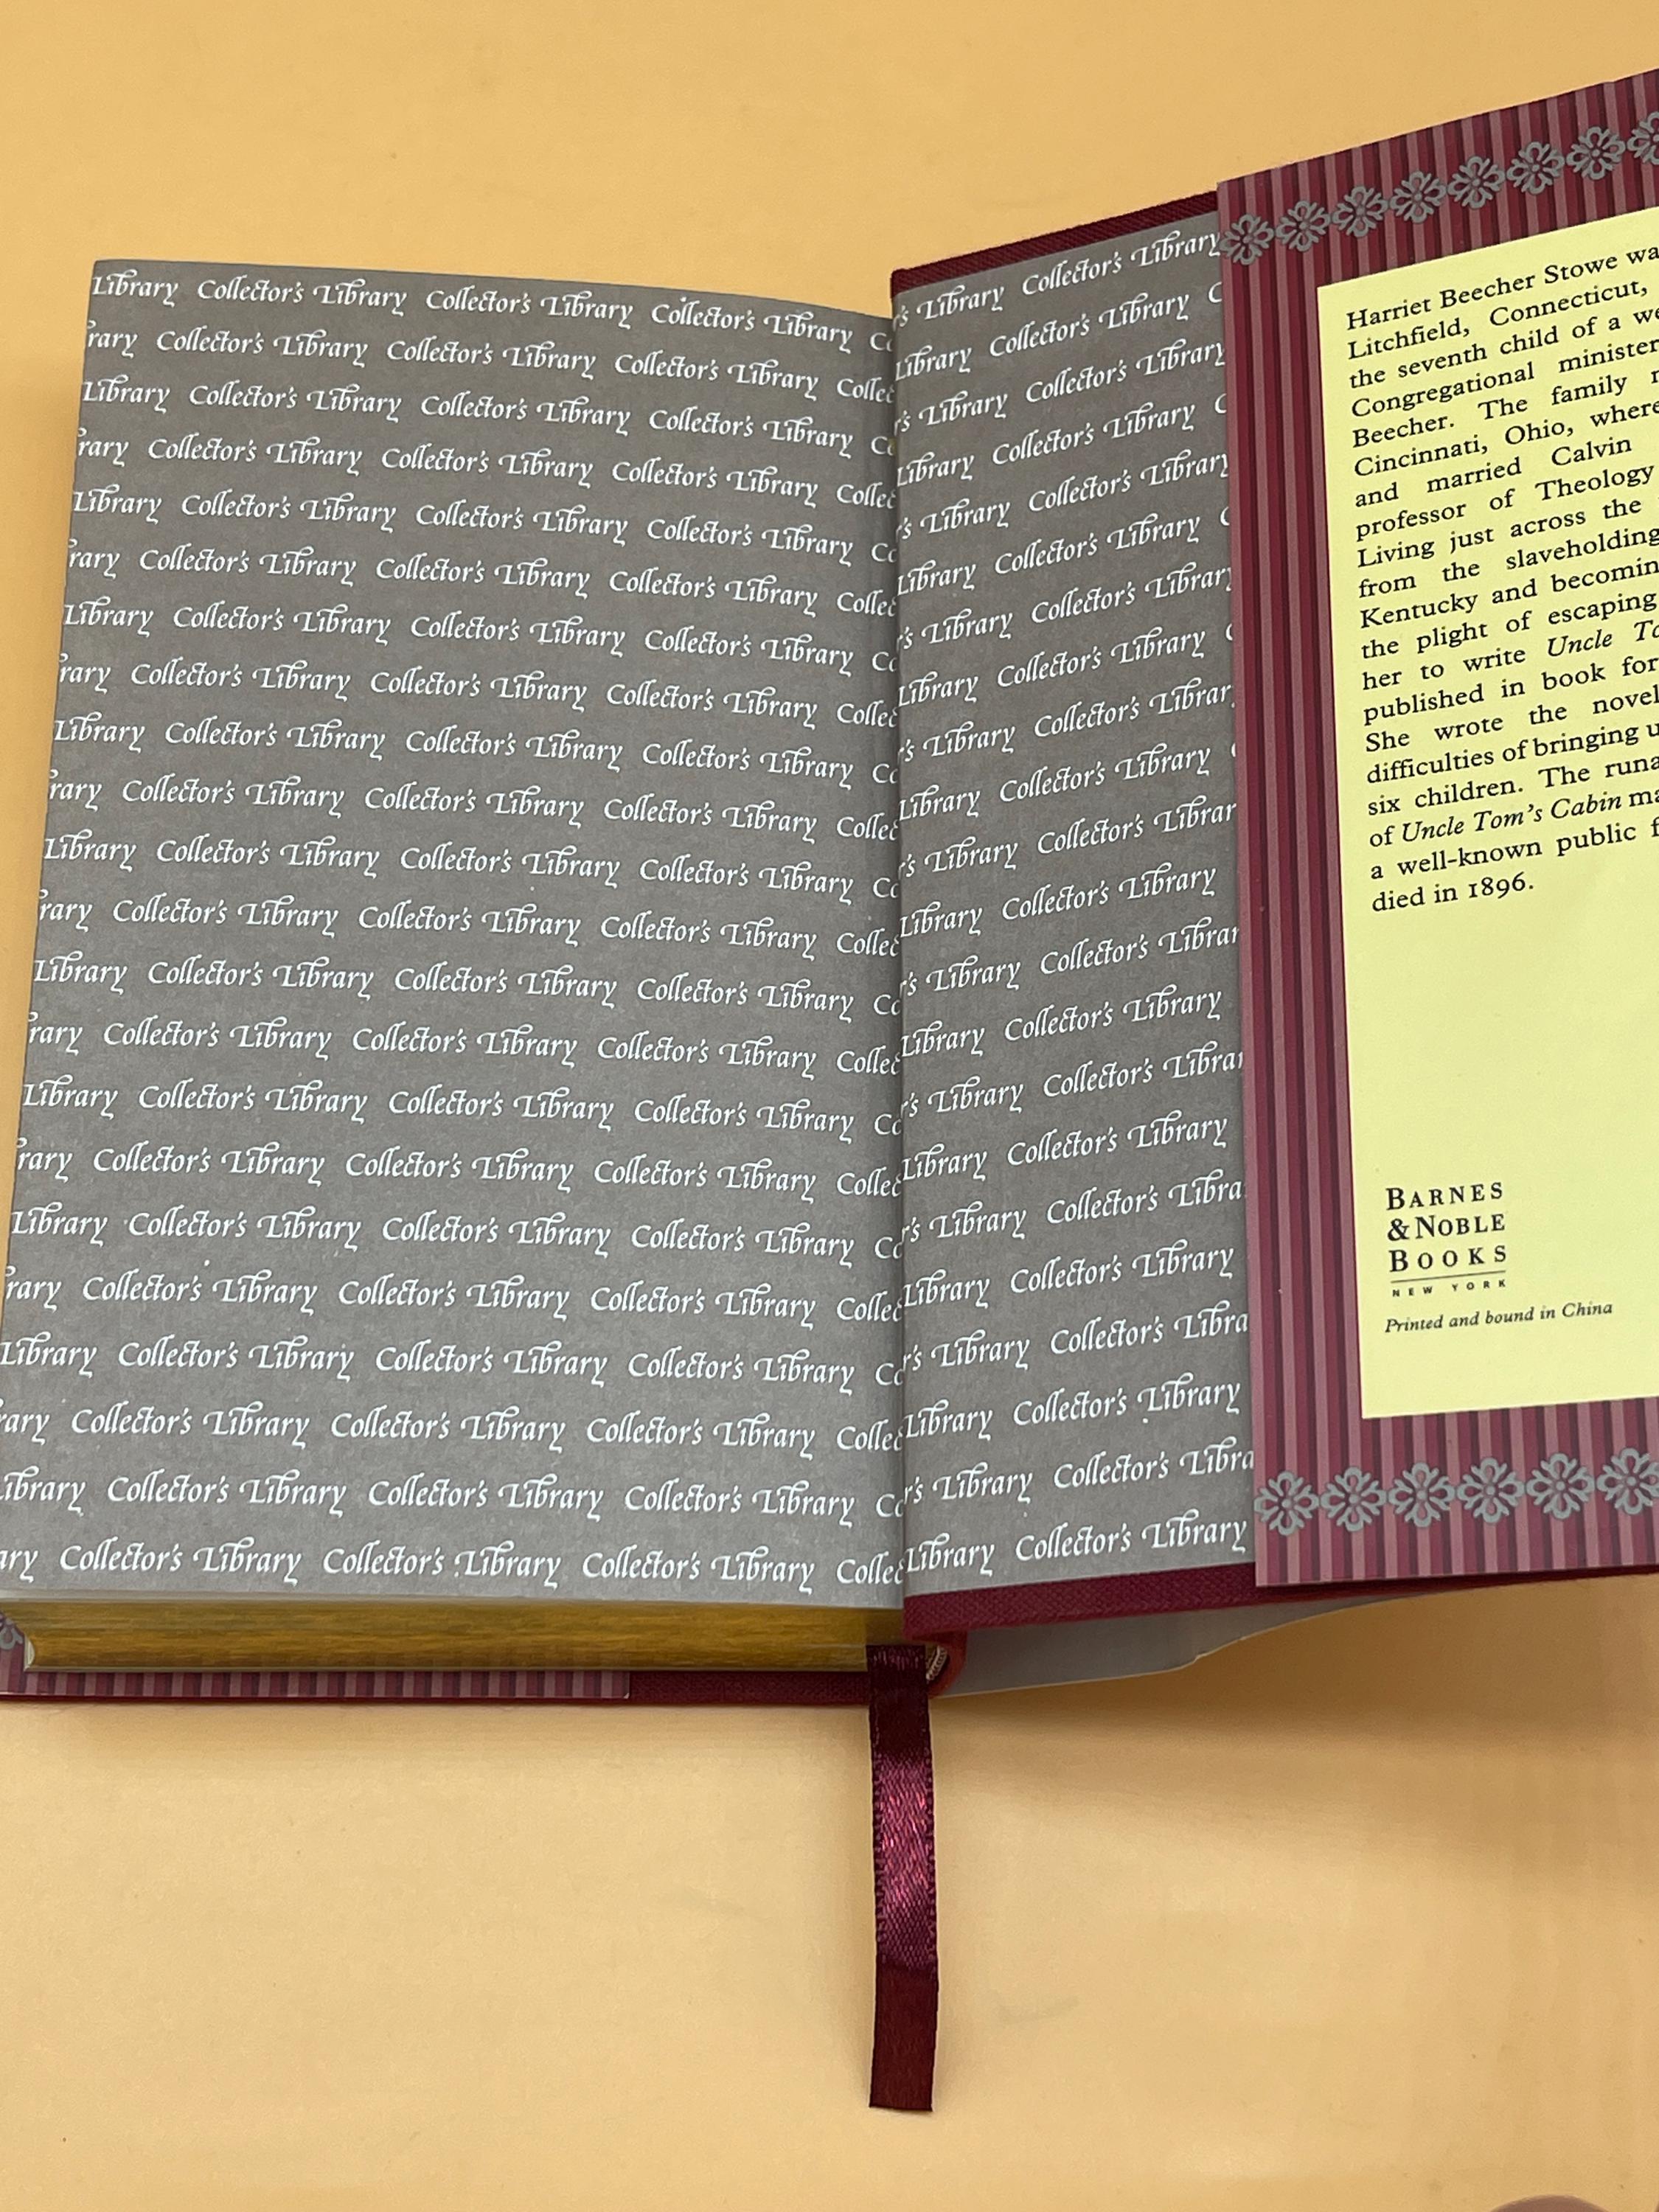 Library Collector's Library Collector's Library Collector's Library Co
rary Collector's Library Collector's Library Collector's Library Collec
Library Collector's Library Collector's Library Collector's Library Co
rary Collector's Library Collector's Library Collector's Library Collec
Library Collector's Library Collector's Library Collector's Library Co
rary Collector's Library Collector's Library Collector's Library Collec
Library Collector's Library Collector's Library Collector's Library Co
rary Collector's Library Collector's Library Collector's Library Collec
Library Collector's Library Collector's Library Collector's Library Co
rary Collector's Library Collector's Library Collector's Library Collec
Library Collector's Library Collector's Library Collector's Library Co
rary Collector's Library Collector's Library Collector's Library Collec
Library Collector's Library Collector's Library Collector's Library Co
rary Collector's Library Collector's Library Collector's Library Collec
Library Collector's Library Collector's Library Collector's Library Co
rary Collector's Library Collector's Library Collector's Library Collec
Library Collector's Library Collector's Library Collector's Library Co
rary Collector's Library Collector's Library Collector's Library Collec
Library Collector's Library Collector's Library Collector's Library Co
rary Collector's Library Collector's Library Collector's Library Collec
ibrary Collector's Library Collector's Library Collector's Library Co
ary Collector's Library Collector's Library Collector's Library Collec
's Library Collector's Library
Library Collector's Library C
's Library Collector's Library
Library Collector's Library C
's Library Collector's Library
Library Collector's Library C
's Library Collector's Library
Library Collector's Library C
's Library Collector's Librar
Library Collector's Library
's Library Collector's Librar
Library Collector's Library
's Library Collector's Librar
Library Collector's Library
's Library Collector's Librar
Library Collector's Library
's Library Collector's Libra
Library Collector's Library
's Library Collector's Libra
Library Collector's Library
's Library Collector's Libra
Library Collector's Library
Harriet Beecher Stowe wa
Litchfield, Connecticut,
the seventh child of a we
Congregational minister
Beecher. The family
Cincinnati, Ohio, where
and married Calvin
professor of Theology
Living just across the
from the slaveholding
Kentucky and becomin
the plight of escaping
her to write Uncle To
published in book for
She wrote the novel
difficulties of bringing u
six children. The runa
of Uncle Tom's Cabin ma
a well-known public f
died in 1896.
BARNES
& NOBLE
BOOKS
NEW YORK
Printed and bound in China